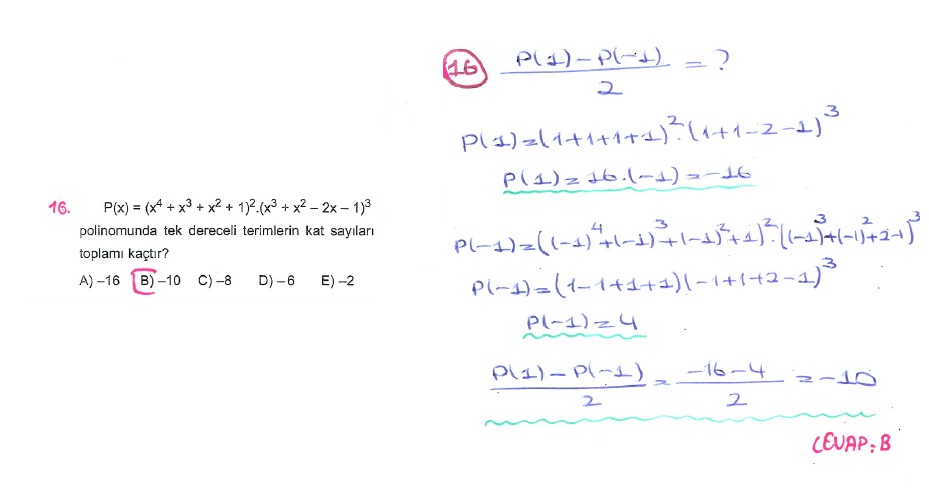 16. P(x) = (x⁴ + x³ + x² + 1)².(x³ + x² – 2x – 1)³
polinomunda tek dereceli terimlerin kat sayıları
toplamı kaçtır?
A) –16 B) –10 C) –8 D) –6 E) –2
16 P(1)-P(-1) / 2 = ?
P(1)=(1+1+1+1)².(1+1-2-1)³
P(1)=16.(-1)=-16
P(-1)=((-1)⁴+(-1)³+(-1)²+1)².((-1)³+(-1)²+2-1)³
P(-1)=(1-1+1+1)(-1+1+2-1)³
P(-1)=4
P(1)-P(-1) / 2 = -16-4 / 2 = -10
CEVAP: B